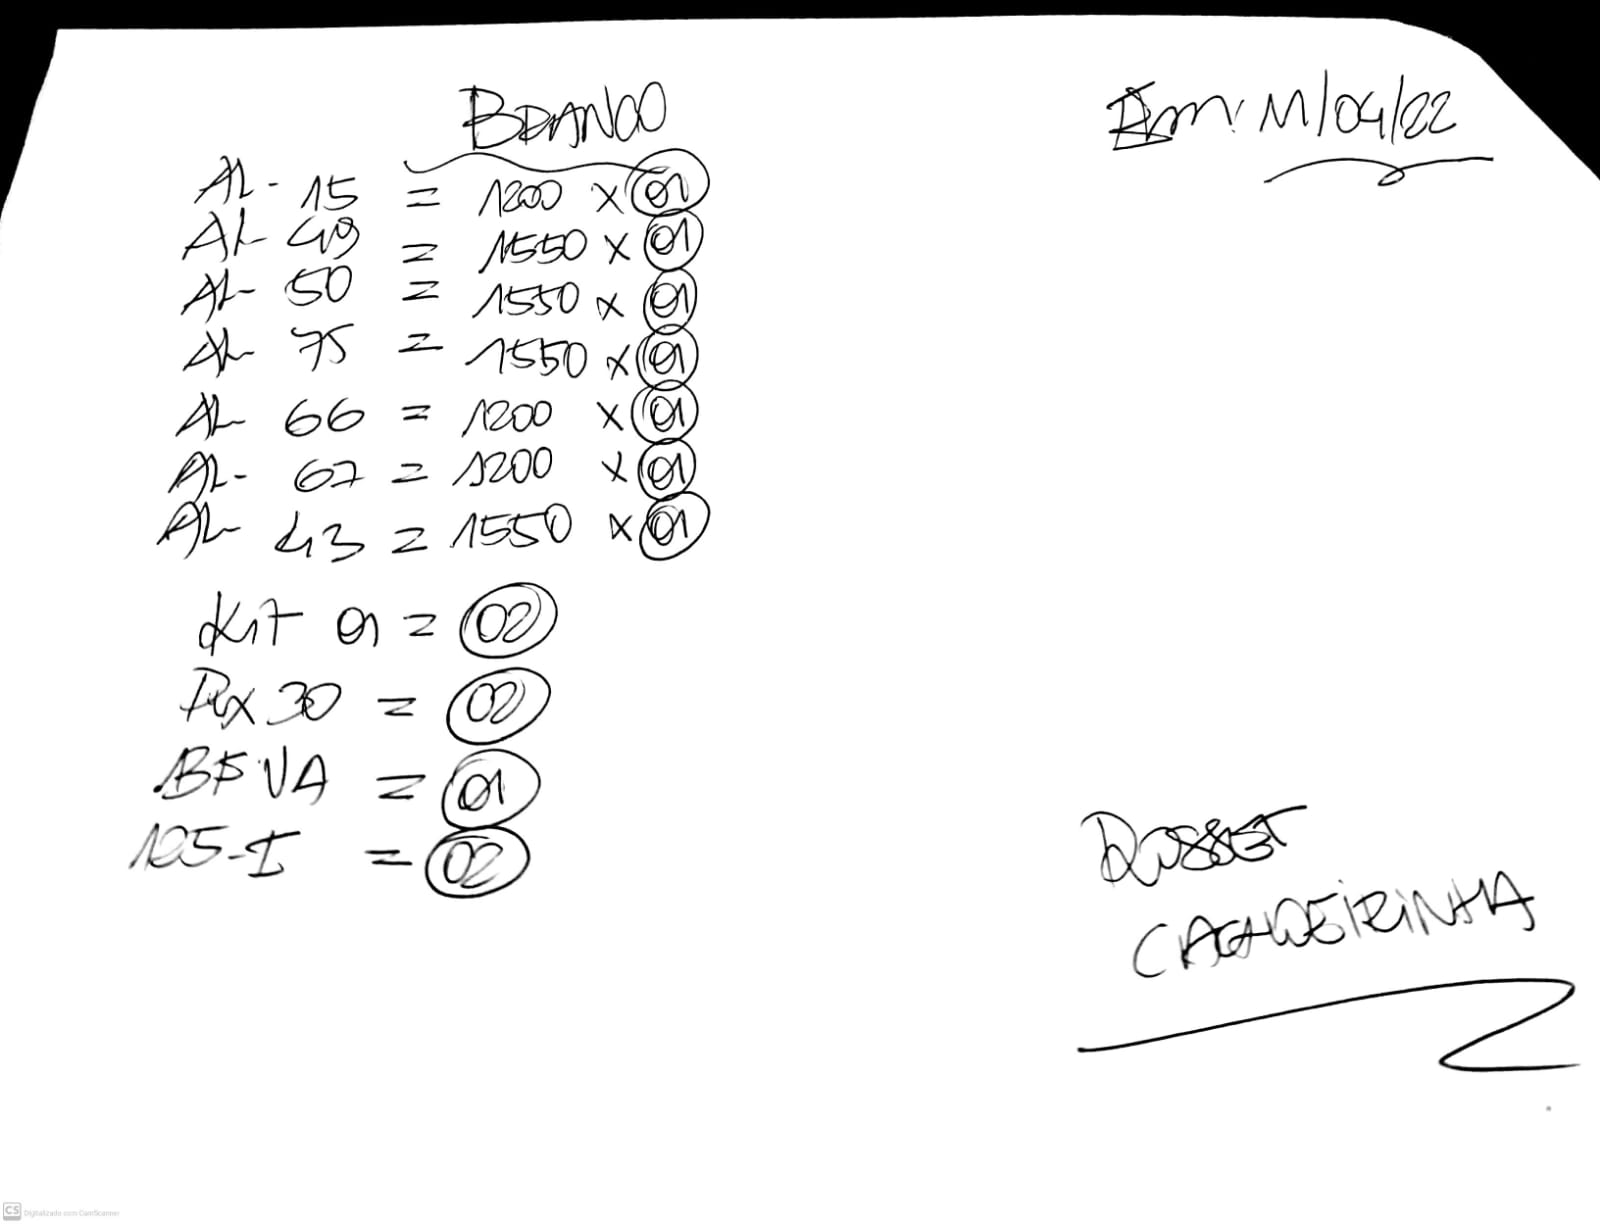 BRANCO
Em: 11/04/22
AL- 15 = 1200 x 01
AL- 49 = 1550 x 01
AL- 50 = 1550 x 01
AL- 75 = 1550 x 01
AL- 66 = 1200 x 01
AL- 67 = 1200 x 01
AL- 43 = 1550 x 01
Kit 01 = 02
Rx 30 = 02
BF VA = 01
125-I = 02
CACHOEIRINHA
CS Digitalizado com CamScanner